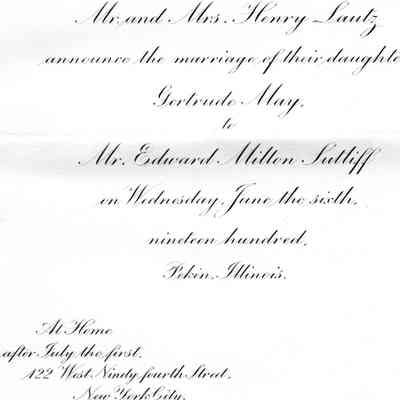 Mr. and Mrs. Henry Lautz
announce the marriage of their daughte
Gertrude May,
to
Mr. Edward Milton Sutliff
on Wednesday, June the sixth,
nineteen hundred,
Pekin, Illinois.
At Home
after July the first,
122 West Ninety fourth Street,
New York City.